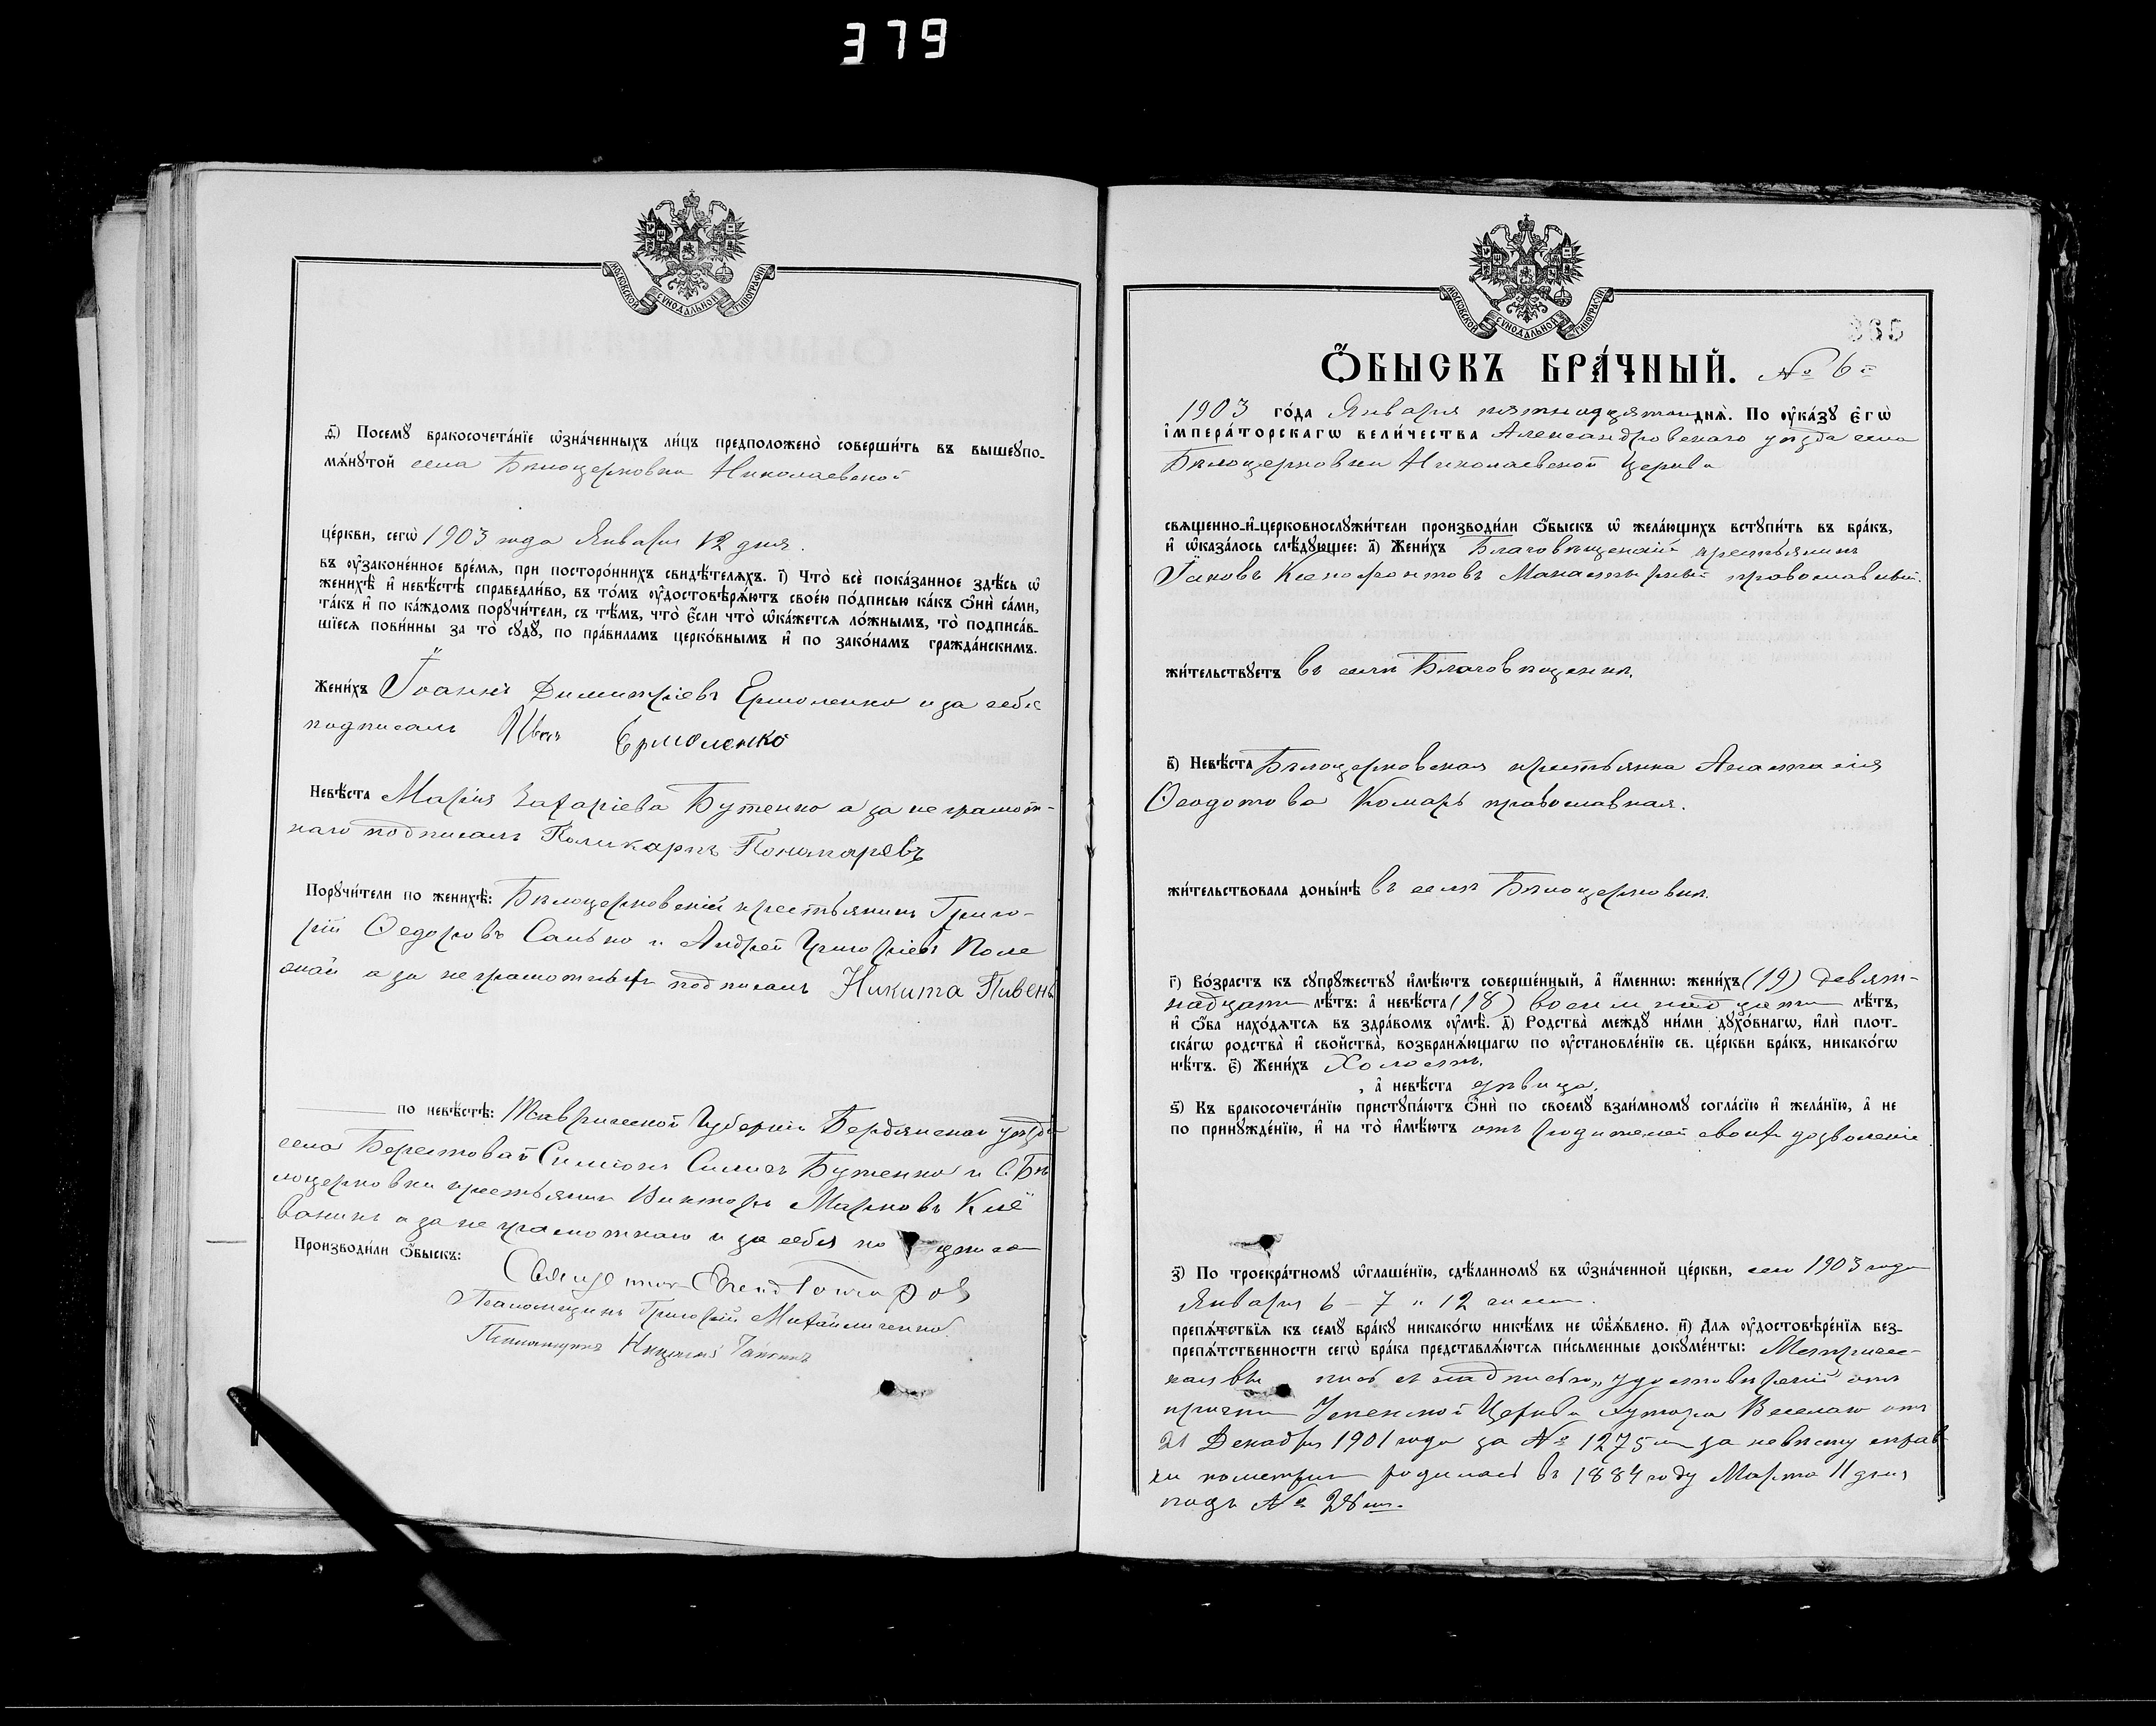 379
МОСКОВСКОЙ СУНОДАЛЬНОЙ ТУПОГРАФІИ
ѳ҃) Посемꙋ бракосочетáнїе ѡ҆знáченныхъ ли́цъ предположенò соверши́ть въ вышеꙋпо-
мѧ́нꙋтой села Бѣлоцерковки Николаевской
цéркви, сегѡ̀ 1903 года Января 12 дня.
въ ᲂу҆законéнное врéмѧ, при посторóннихъ свидѣ́телѧхъ. і҃) Чтò всѐ покáзанное здѣ́сь ѡ҆
женихѣ̀ и҆ невѣ́стѣ справедли́во, въ тóмъ ᲂу҆достовѣрѧ́ютъ своéю пóдписью кáкъ ѻ҆нѝ сáми,
тáкъ и҆ по кáждомъ порꙋчи́тели, съ тѣ́мъ, чтò є҆́сли чтò ѡ҆кáжетсѧ лóжнымъ, тò подписáв-
шїесѧ пови́нны за тò сꙋдꙋ̀, по прáвиламъ церкóвнымъ и҆ по закóнамъ граждáнскимъ.
Жени́хъ Іоаннъ Димитріевъ Ермоленко и за себя
подписалъ Иванъ Ермоленко
Невѣ́ста Марія Захаріева Бутенко а за неграмот-
наго подписалъ Поликарпъ Пономаревъ
Порꙋчи́тели по женихѣ̀: Бѣлоцерковскій крестьянинъ Григо-
рій Ѳедоровъ Санько и Андрей Григоріевъ Поле
а за неграмотныхъ подписалъ Никита Пивень
по невѣ́стѣ: Таврической Губерніи Бердянскаго уѣзда
села Берестоваго Симеонъ Бутенко и С. Бѣ
лоцерковки крестьянинъ Викторъ Марковъ Кле
ванинъ а за неграмотнаго и за себя по
Производи́ли ѻ҆́быскъ: Священникъ
Псаломщикъ Григорій Михайличенко.
365
Ѻ҆́БЫСКЪ БРÁЧНЫЙ. № 6й
1903 гóда Января пятнадцатаго днѧ̀. По ᲂу҆кáзꙋ є҆гѡ̀
і҆мперáторскагѡ вели́чества Александровскаго уѣзда села
Бѣлоцерковки Николаевской Церкви
свѧщенно-и҆-церковнослꙋжи́тели производи́ли ѻ҆́быскъ ѡ҆ желáющихъ встꙋпи́ть въ брáкъ,
и҆ ѡ҆казáлось слѣ́дꙋющее: а҃) Жени́хъ Благовѣщенскій крестьянинъ
Іаковъ Ксенофонтовъ Манастырный православный.
жи́тельствꙋетъ въ селѣ Благовѣщенкѣ.
в҃) Невѣ́ста Бѣлоцерковская крестьянка Анастасія
Ѳеодотова Комарь православная.
жи́тельствовала доны́нѣ въ селѣ Бѣлоцерковкѣ.
г҃) Вóзрастъ къ сꙋпрꙋжествꙋ и҆мѣ́ютъ совершéнный, а҆ и҆́меннѡ: жени́хъ (19) девят-
надцати лѣ́тъ: а҆ невѣ́ста (18) восемнадцати лѣ́тъ,
и҆ ѻ҆́ба нахóдѧтсѧ въ здрáвомъ ᲂу҆мѣ̀. д҃) Родствà междꙋ̀ ни́ми дꙋхóвнагѡ, и҆лѝ плот-
скáгѡ родствà и҆ свойствà, возбранѧ́ющагѡ по ᲂу҆становлéнїю св. цéркви брáкъ, никакóгѡ
нѣ́тъ. є҃) Жени́хъ Холостъ.
, а҆ невѣ́ста дѣвица.
ѕ҃) Къ бракосочетáнїю пристꙋпáютъ ѻ҆нѝ по своемꙋ̀ взаи́мномꙋ соглáсїю и҆ желáнїю, а҆ не
по принꙋждéнїю, и҆ на тò и҆мѣ́ютъ отъ родителей своихъ дозволеніе
з҃) По троекрáтномꙋ ѡ҆глашéнїю, сдѣ́ланномꙋ въ ѡ҆знáченной цéркви, сего 1903 года
Января 6 – 7 и 12 числа.
препѧ́тствїѧ къ семꙋ̀ брáкꙋ никакóгѡ никѣ́мъ не ѡ҆бъѧ́влено. и҃) Длѧ ᲂу҆достовѣрéнїѧ без-
препѧ́тственности сегѡ̀ брáка представлѧ́ютсѧ пи́сьменные докꙋмéнты: Метричес-
кая вы пись съ надписью „удостовѣреній“ отъ
причта Успенской Церкви Хутора Веселаго отъ
21 Декабря 1901 года за № 1275 м за невѣсту справ
ки пометрикѣ родилась въ 1884 году Марта 11 дня
подъ № 28 мъ.